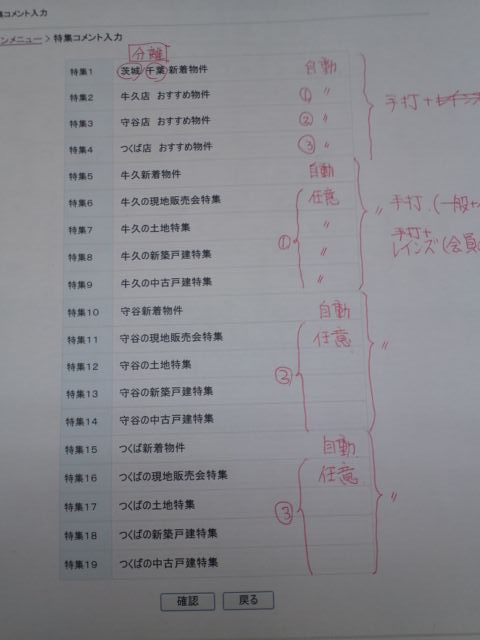 集コメント入力
ンメニュー > 特集コメント入力
分離
特集1 茨城 千葉 新着物件 自動
特集2 牛久店 おすすめ物件 ① 〃 手打+レインズ
特集3 守谷店 おすすめ物件 ② 〃
特集4 つくば店 おすすめ物件 ③ 〃
特集5 牛久新着物件 自動
特集6 牛久の現地販売会特集 任意 〃 手打.(一般+
特集7 牛久の土地特集 〃 手打+
特集8 牛久の新築戸建特集 ① 〃 レインズ(会員
特集9 牛久の中古戸建特集 〃
特集10 守谷新着物件 自動
特集11 守谷の現地販売会特集 任意 〃
特集12 守谷の土地特集 ②
特集13 守谷の新築戸建特集
特集14 守谷の中古戸建特集
特集15 つくば新着物件 自動
特集16 つくばの現地販売会特集 任意
特集17 つくばの土地特集 ③ 〃
特集18 つくばの新築戸建特集
特集19 つくばの中古戸建特集
確認 戻る